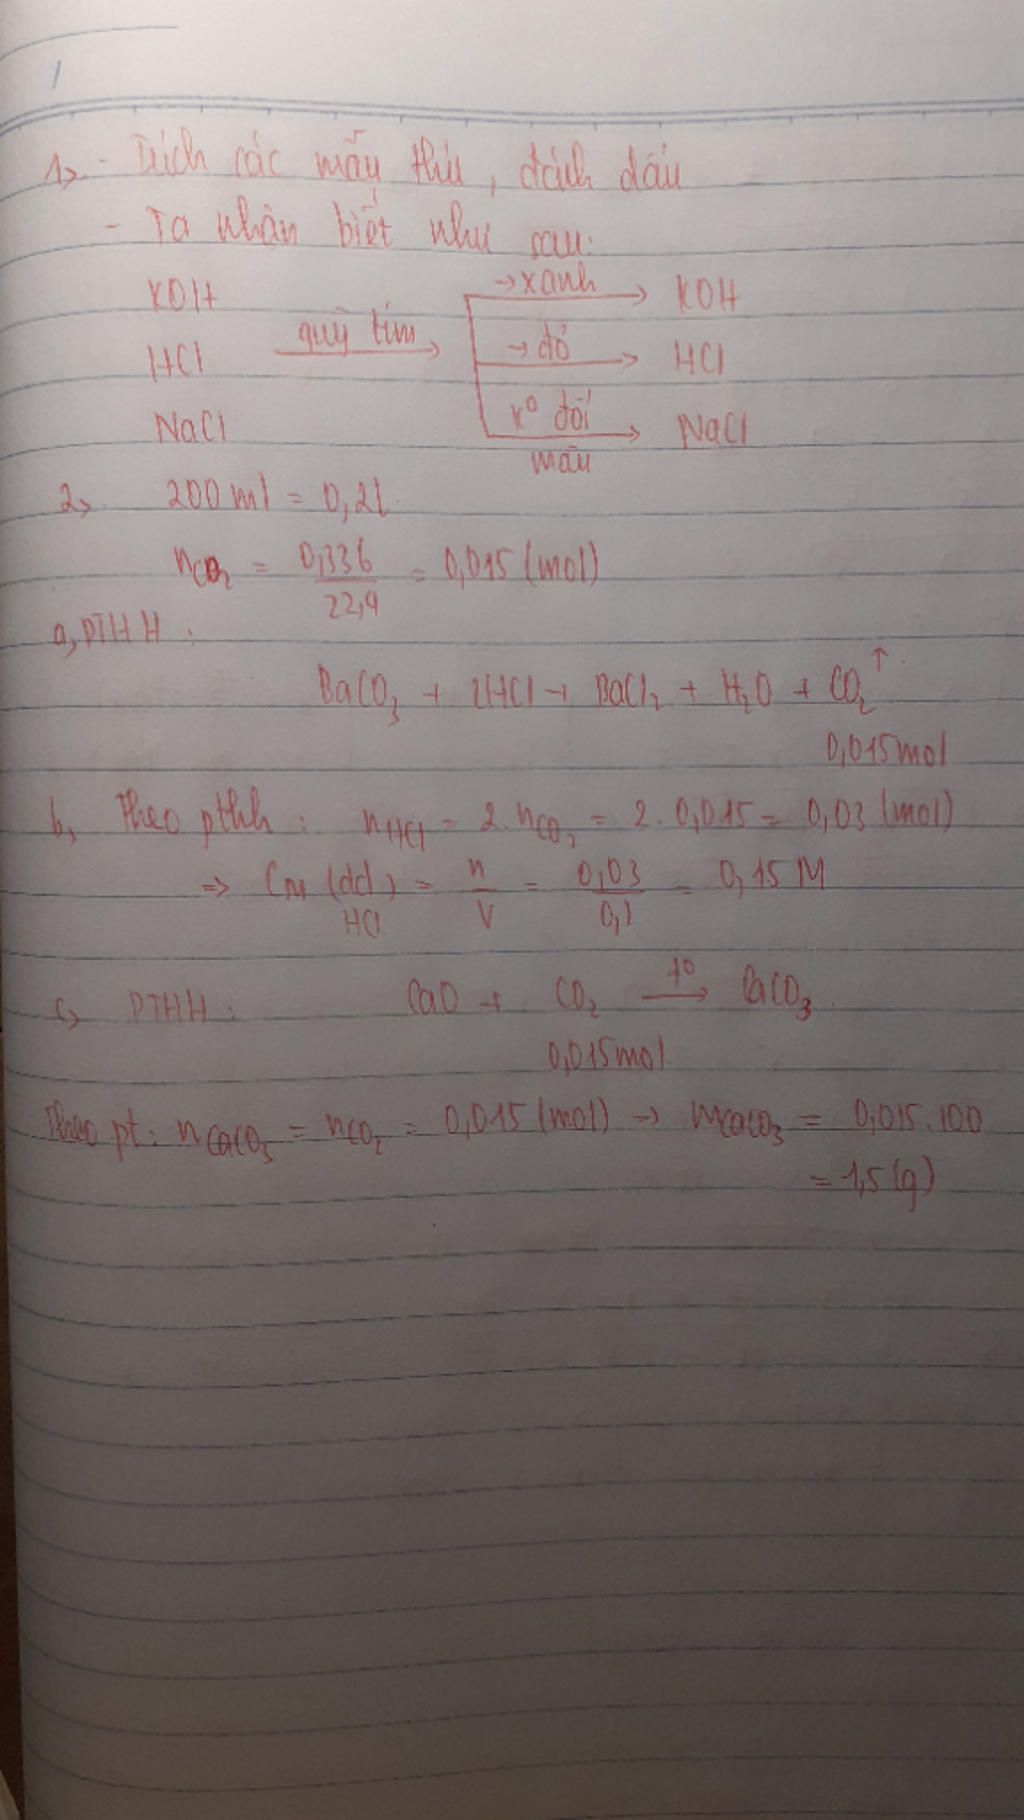 1, - Trích các mẫu thử, đánh dấu
- Ta nhận biết như sau:
KOH → xanh KOH
HCl quỳ tím → đỏ HCl
NaCl k° đổi màu NaCl
2, 200 ml = 0,2l
nCO₂ = 0,336/22,4 = 0,015 (mol)
a, PTHH :
BaCO₃ + 2HCl → BaCl₂ + H₂O + CO₂↑
0,015mol
b, Theo pthh : nHCl = 2.nCO₂ = 2.0,015 = 0,03 (mol)
=> CM (dd HCl) = n/V = 0,03/0,2 = 0,15 M
c, PTHH : CaO + CO₂ t°→ CaCO₃
0,015mol
Theo pt: nCaCO₃ = nCO₂ = 0,015 (mol) → mCaCO₃ = 0,015.100
= 1,5 (g)